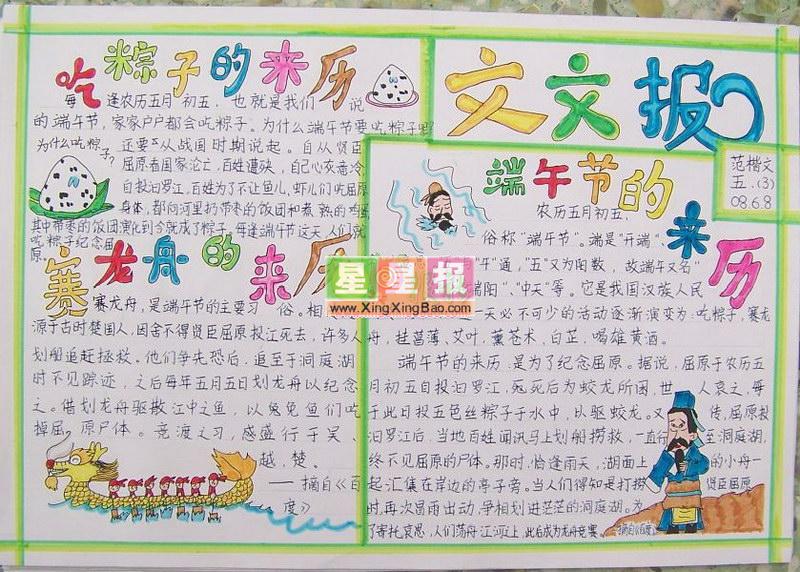 文文报
范楷文
五.(3)
08.6.8
吃粽子的来历
每逢农历五月初五，也就是我们说
的端午节，家家户户都会吃粽子。为什么端午节要吃粽子呢
为什么吃粽子?
还要从战国时期说起。自从贤臣
屈原看国家沦亡，百姓遭殃，自己心灰意冷
自投汨罗江，百姓为了不让鱼儿，虾儿们吃屈原
身体，都向河里扔带枣的饭团和煮熟的鸡蛋
其中带枣的饭团演化到今就成了粽子。每逢端午节这天，人们就
吃粽子纪念屈
原。
赛龙舟的来历
赛龙舟，是端午节的主要习俗。相
源于古时楚国人，因舍不得贤臣屈原投江死去，许多人
划船追赶拯救。他们争先恐后，追至于洞庭湖
时不见踪迹，之后每年五月五日划龙舟以纪念
之。借划龙舟驱散江中之鱼，以免鱼们吃
掉屈原尸体。竞渡之习，感盛行于吴、
越，楚。
——摘自《百
度》
端午节的来历
农历五月初五，
俗称"端午节"。端是"开端"、
"午"通，"五"又为阳数，故端午又名"
端阳"、"中天"等。它是我国汉族人民
一天必不可少的活动逐渐演变为:吃粽子，赛龙
舟，挂菖蒲、艾叶，薰苍术，白芷，喝雄黄酒。
端午节的来历，是为了纪念屈原。据说，屈原于农历五
月初五自投汨罗江，死后为蛟龙所困，世人哀之，每
于此日投五色丝粽子于水中，以驱蛟龙。又传，屈原投
汨罗江后，当地百姓闻讯马上划船捞救，一直行至洞庭湖，
终不见屈原的尸体。那时，恰逢雨天，湖面上的小舟一
起汇集在岸边的亭子旁。当人们得知是打捞贤臣屈原
时，再次冒雨出动，争相划进茫茫的洞庭湖。为
了寄托哀思，人们荡舟江河上，此后成为龙舟竞赛。
星星报
www.XingXingBao.com